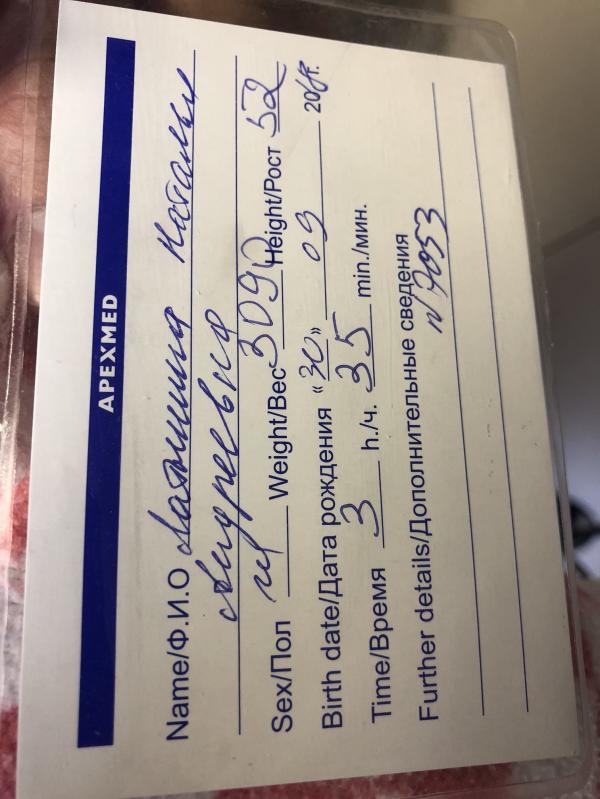 APEXMED
Name/Ф.И.О Латышина Наталья
Андреевна
Sex/Пол м Weight/Вес 3090 Height/Рост 52
Birth date/Дата рождения «30» 09 20
Time/Время 3 h./ч. 35 min./мин.
Further details/Дополнительные сведения
n/7053